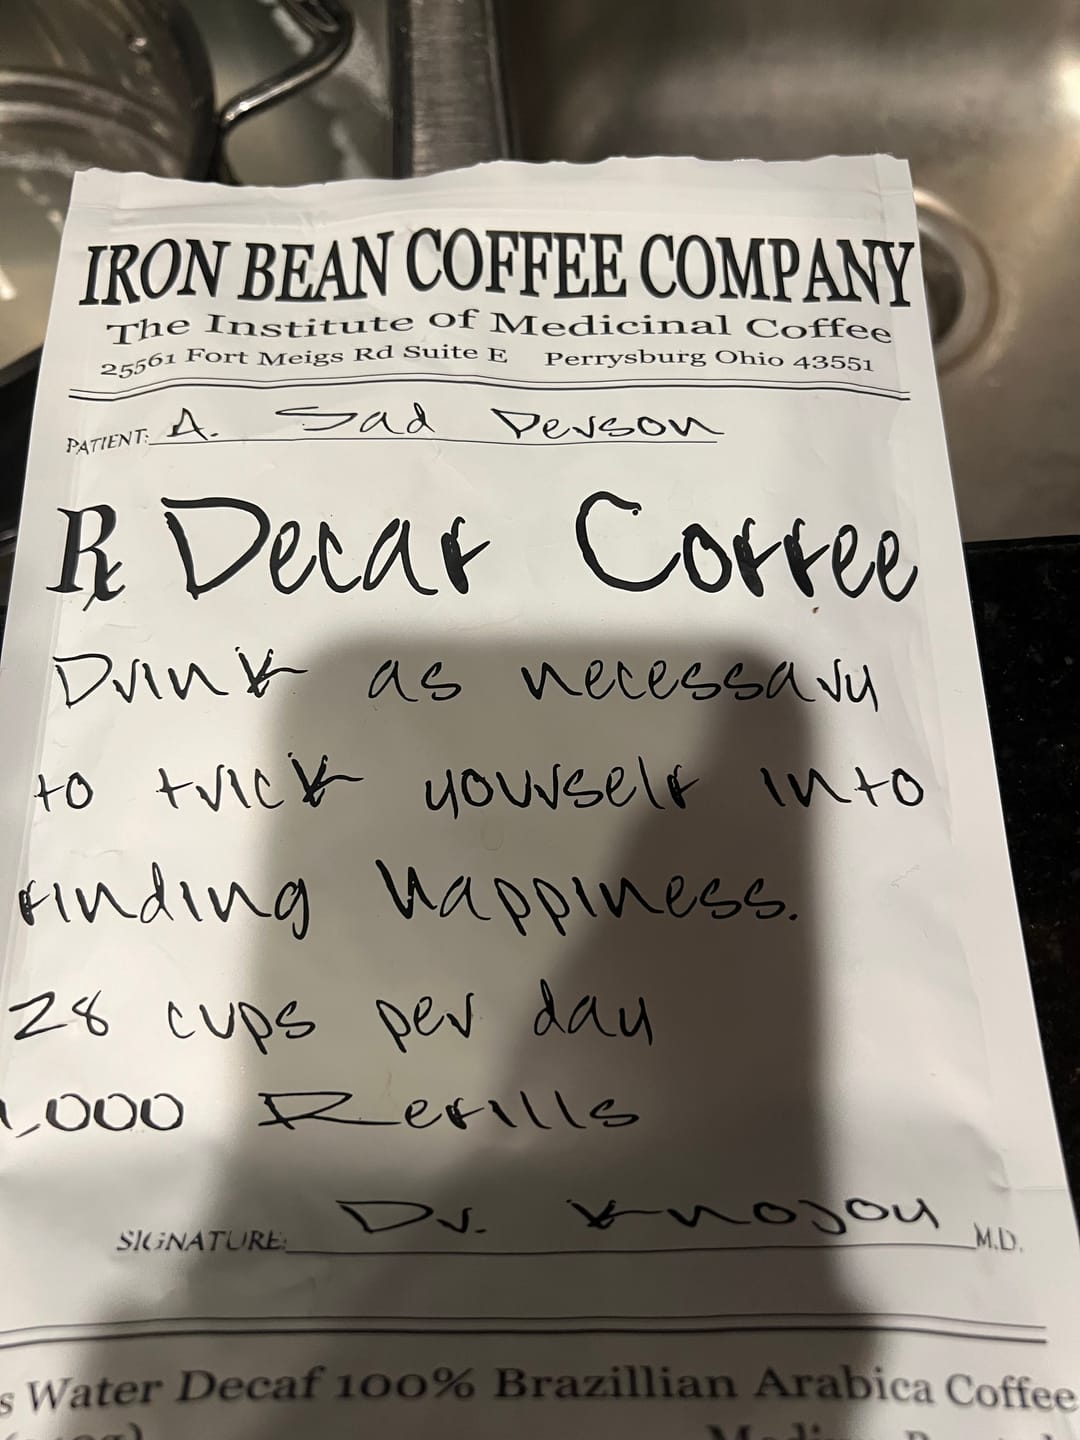 IRON BEAN COFFEE COMPANY
The Institute of Medicinal Coffee
25561 Fort Meigs Rd Suite E Perrysburg Ohio 43551
PATIENT: A. Sad Person
Rx Decaf Coffee
Drink as necessary
to trick yourself into
finding happiness.
28 cups per day
1,000 Refills
SIGNATURE: Dr. Knojoy M.D.
s Water Decaf 100% Brazillian Arabica Coffee